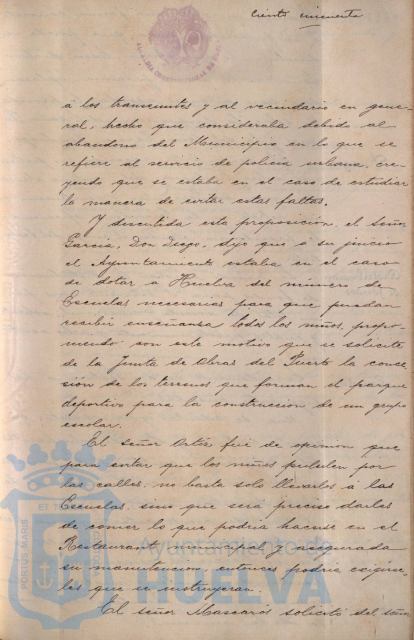 Ciento cincuenta
á los transeuntes y al vecindario en gene-
ral, hecho que consideraba debido al
abandono del Municipio en lo que se
refiere al servicio de policía urbana, cre-
yendo que se estaba en el caso de estudiar
la manera de evitar estas faltas.
Y discutida esta proposición, el señor
García, Don Diego, dijo que á su juicio
el Ayuntamiento estaba en el caso
de dotar a Huelva del número de
Escuelas necesarias para que puedan
recibir enseñanza todos los niños, propo-
niendo con este motivo que se solicite
de la Junta de Obras del Puerto la conce-
sión de los terrenos que forman el parque
deportivo para la construcción de un grupo
escolar.
El señor Ortiz fué de opinión que
para evitar que los niños pululen por
las calles, no basta solo llevarlos á las
Escuelas, sino que será preciso darles
de comer lo que podría hacerse en el
Restaurant y asegurada
su manutención, entonces podría exigirse-
les que se instruyeran.
El señor Mascarós solicitó del señor
Ayuntamiento de
HUELVA
PORTUS MARIS